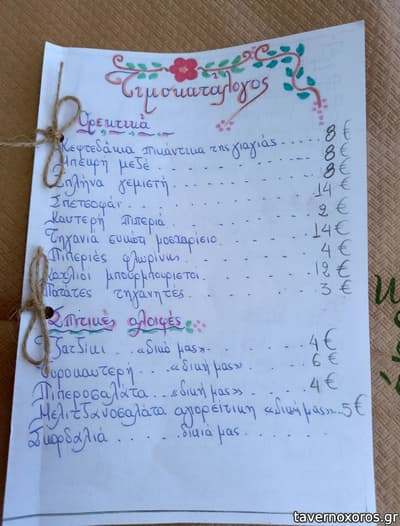 Τιμοκατάλογος
Ορεκτικά
Κεφτεδάκια πικάντικα της γιαγιάς..... 8€
Μπεκρή μεζέ ......... 8€
Σπλήνα γεμιστή ........ 8€
Σπετσοφάι ........ 14€
Καυτερή πιπεριά ....... 2€
Τηγανιά συκώτι μοσχαρίσιο ..... 14€
Πιπεριές φλωρίνης ....... 4€
Κοχλιοί μπουρμπουριστοί ...... 12€
Πατάτες τηγανητές ....... 3€
Σπιτικές αλοιφές
Τζατζίκι ... «δικό μας» ..... 4€
Τυροκαυτερή ... «δική μας» .... 6€
Πιπεροσαλάτα ... «δική μας» ... 4€
Μελιτζανοσαλάτα αγορείτικη «δική μας».. 5€
Σκορδαλιά ..... δικιά μας .......
tavernoxoros.gr